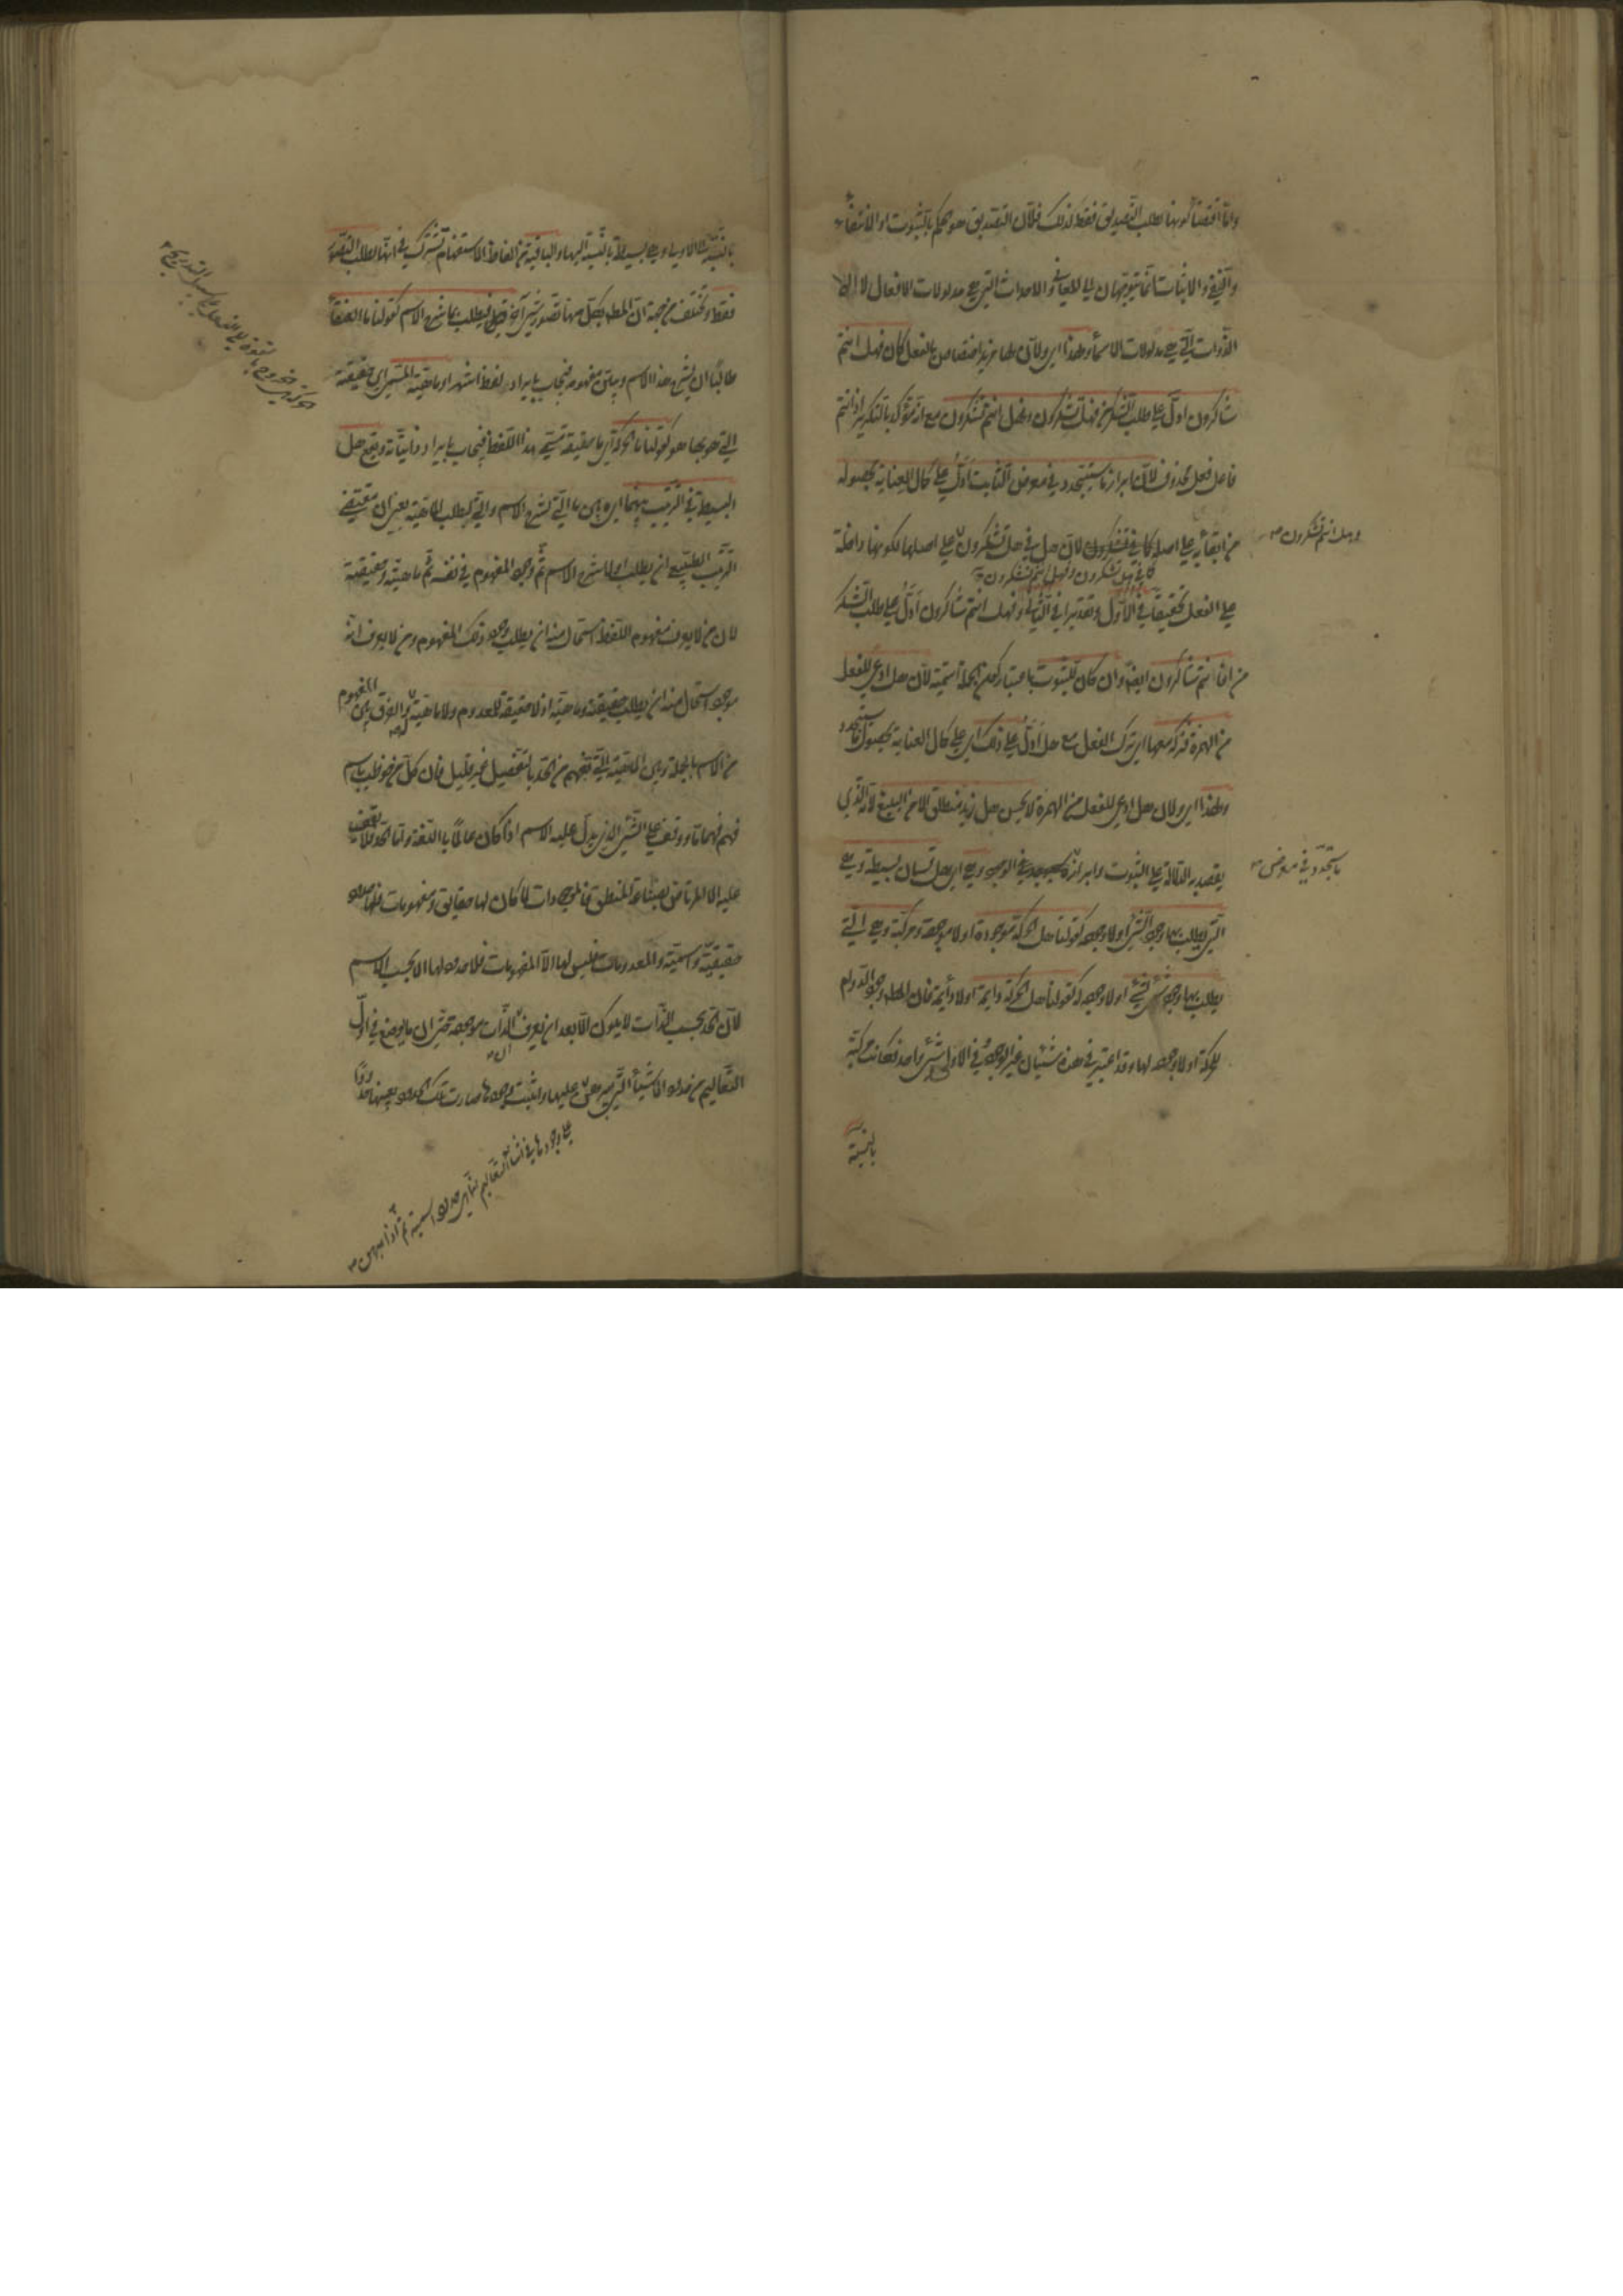 واما اقتضاؤ كونها لطلب التصديق فقط لذلك فلان التصديق هو الحكم بالثبوت او الانتفاء
والنفي والاثبات انما يتوجهان الى المعاني والاحداث التي هي مدلولات الافعال لا الى
الذوات التي هي مدلولات الاسماء ولهذا اي ولان لها مزيد اختصاص بالفعل كان فهل انتم
شاكرون ادل على طلب الشكر من فهل تشكرون وفهل انتم تشكرون مع انه مؤكد بالتكرير اذ انتم
فاعل فعل محذوف لان ابراز ما سيتجدد في معرض الثابت ادل على كمال العناية بحصوله
من ابقائه على اصله كما في تشكرون لان هل في هل تشكرون على اصلها لكونها داخلة
وهل انتم تشكرون
كما في هل تشكرون وفهل انتم تشكرون
على الفعل تحقيقا في الاول وتقديرا في الثاني وفهل انتم شاكرون ادل على طلب الشكر
من افانتم شاكرون ايضا وان كان للثبوت باعتبار كون الجملة اسمية لان هل ادعى للفعل
من الهمزة فتركه معها اي ترك الفعل مع هل ادل على ذلك اي على كمال العناية بحصول ما سيتجدد
ولهذا اي ولان هل ادعى للفعل من الهمزة لا يحسن هل زيد منطلق الا من البليغ لانه الذي
يقصد به الدلالة على الثبوت وابراز ما سيوجد في الوجود وهي اي هل قسمان بسيطة وهي
يتجدد في معرض
التي يطلب بها وجود الشئ او لا وجوده كقولنا هل الحركة موجودة او لا موجودة ومركبة وهي التي
يطلب بها وجود شئ لشئ او لا وجوده له كقولنا هل الحركة دايمة او لا دايمة فان المطلوب وجود الدوام
للحركة او لا وجوده لها وقد اعتبر في هذه شيئان غير الوجود وفي الاولى شئ واحد فكانت مركبة
بالنسبة
بالنسبة الى الاولى وهي بسيطة بالنسبة اليها والباقية من الفاظ الاستفهام تشترك في انها لطلب التصور
فقط وتختلف من جهة ان المطلوب بكل منها تصور شئ آخر قيل فيطلب بما شرح الاسم كقولنا ما العنقاء
طالبا ان يشرح هذا الاسم ويبين مفهومه فيجاب بايراد لفظ اشهر او ماهية المسمى اي حقيقته
التي هو بها هو كقولنا ما الحركة اي ما حقيقة مسمى هذا اللفظ فيجاب بايراد ذاتياته ويقع هل
البسيطة في الترتيب بينهما اي بين ما التي لشرح الاسم والتي لطلب الماهية يعني ان مقتضى
الترتيب الطبيعي ان يطلب اولا شرح الاسم ثم وجود المفهوم في نفسه ثم ماهيته وحقيقته
لان من لا يعرف مفهوم اللفظ استحال منه ان يطلب وجود ذلك المفهوم ومن لا يعرف انه
موجود استحال منه ان يطلب حقيقته وماهيته اذ لا حقيقة للمعدوم ولا ماهية له والفرق بين المفهوم
من الاسم بالجملة وبين الماهية التي تفهم من الحد بالتفصيل غير قليل فان كل من خوطب باسم
فهم فهما ما ووقف على الشئ الذي يدل عليه الاسم اذا كان عالما باللغة واما الحد فلا يقف
عليه الا المرتاض بصناعة المنطق فالموجودات لما كان لها حقايق ومفهومات فلها حدود
حقيقية واسمية والمعدومات فليس لها الا المفهومات فلا حدود لها الا بحسب الاسم
لان الحد بحسب الذات لا يكون الا بعد ان يعرف ان الذات موجودة حتى ان ما يوضع في اول
التعاليم من حدود الاشياء التي يبرهن عليها واثبت وجودها صارت تلك الحدود بعينها حدودا
على وجودها في اثناء التعاليم انما هي حدود اسمية ثم اذا برهن